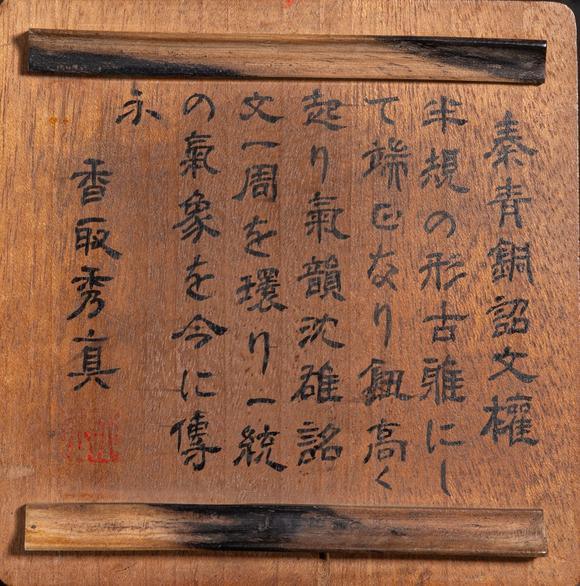 秦青銅詔文權
半規の形古雅にし
て端正なり鈕高く
起り氣韻沈雄銘
文一周を環り一統
の氣象を今に傳
ふ
香取秀真